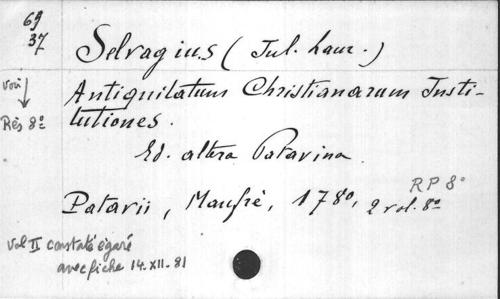 69
37
Selvagius (Jul. Laur.)
voir
Rés 8º
Antiquitatum Christianarum Insti-
tutiones.
Ed. altera Patavina.
Patavii, Manfrè, 1780, 2 vol. 8º
RP 8º
Vol II constaté égaré
avec fiche 14.XII.81